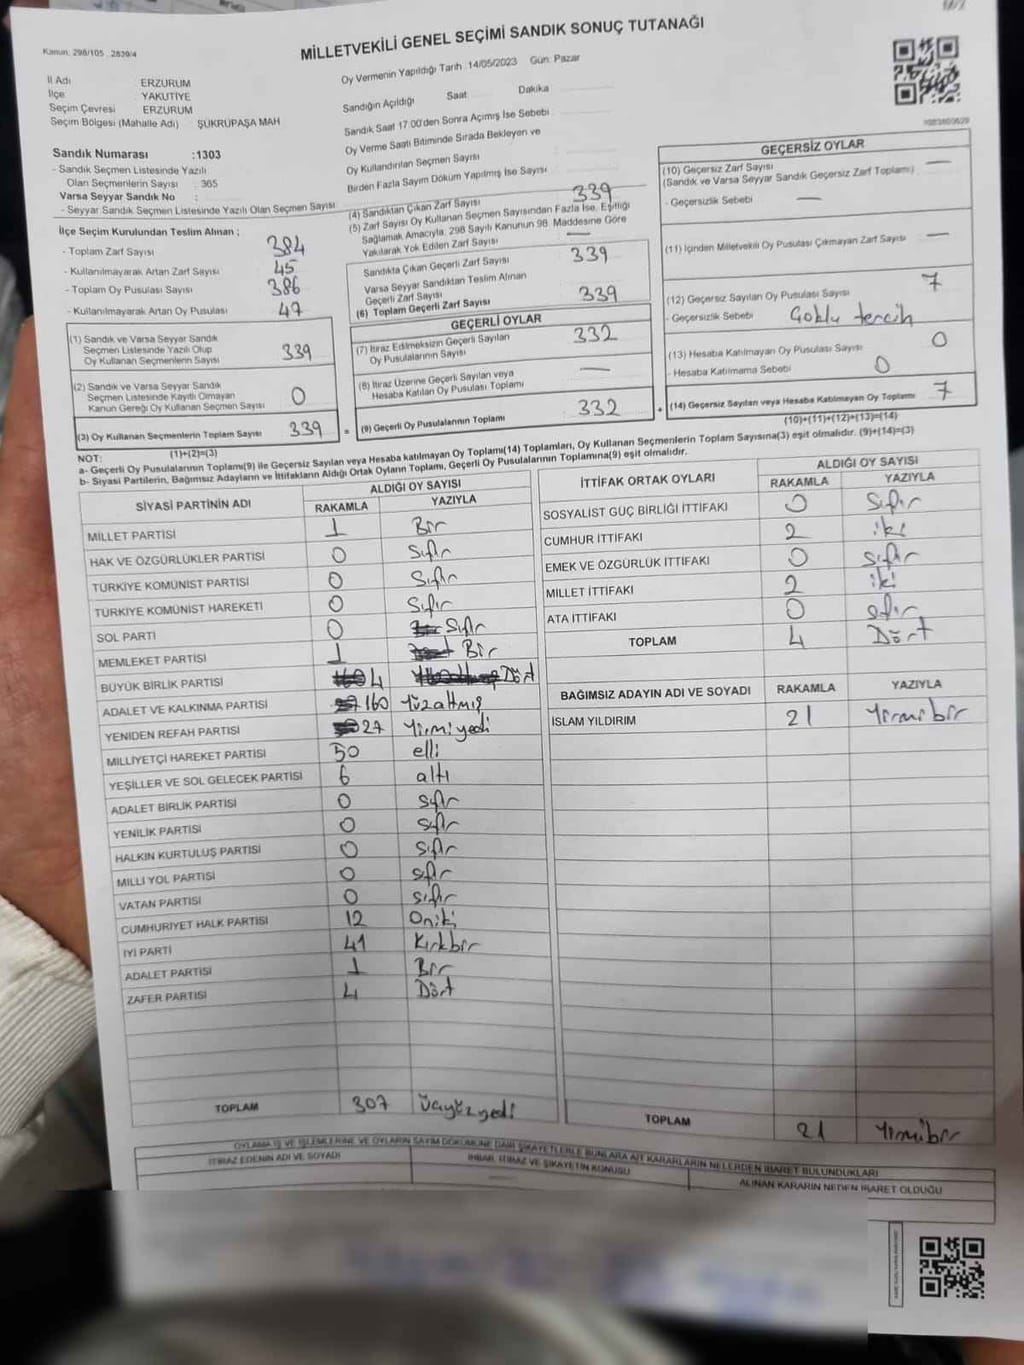 Kanun: 298/105 . 2839/4
MİLLETVEKİLİ GENEL SEÇİMİ SANDIK SONUÇ TUTANAĞI
İl Adı ERZURUM
İlçe YAKUTİYE
Seçim Çevresi ERZURUM
Seçim Bölgesi (Mahalle Adı) : ŞÜKRÜPAŞA MAH
Sandık Numarası :1303
- Sandık Seçmen Listesinde Yazılı
Olan Seçmenlerin Sayısı : 365
Varsa Seyyar Sandık No
- Seyyar Sandık Seçmen Listesinde Yazılı Olan Seçmen Sayısı
Oy Vermenin Yapıldığı Tarih :14/05/2023 Gün: Pazar
Sandığın Açıldığı Saat Dakika
Sandık Saat 17.00'den Sonra Açımış İse Sebebi
Oy Verme Saati Bitiminde Sırada Bekleyen ve
Oy Kullandırılan Seçmen Sayısı
Birden Fazla Sayım Döküm Yapılmış İse Sayısı
İlçe Seçim Kurulundan Teslim Alınan ;
- Toplam Zarf Sayısı 384
- Kullanılmayarak Artan Zarf Sayısı 45
- Toplam Oy Pusulası Sayısı 386
- Kullanılmayarak Artan Oy Pusulası 47
(1) Sandık ve Varsa Seyyar Sandık
Seçmen Listesinde Yazılı Olup
Oy Kullanan Seçmenlerin Sayısı 339
(2) Sandık ve Varsa Seyyar Sandık
Seçmen Listesinde Kayıtlı Olmayan
Kanun Gereği Oy Kullanan Seçmen Sayısı 0
(3) Oy Kullanan Seçmenlerin Toplam Sayısı 339 =
(1)+(2)=(3)
(4) Sandıktan Çıkan Zarf Sayısı 339
(5) Zarf Sayısı Oy Kullanan Seçmen Sayısından Fazla İse, Eşitliği
Sağlamak Amacıyla, 298 Sayılı Kanunun 98. Maddesine Göre
Yakılarak Yok Edilen Zarf Sayısı —
Sandıkta Çıkan Geçerli Zarf Sayısı 339
Varsa Seyyar Sandıktan Teslim Alınan
Geçerli Zarf Sayısı
(6) Toplam Geçerli Zarf Sayısı 339
GEÇERLİ OYLAR
(7) İtiraz Edilmeksizin Geçerli Sayılan
Oy Pusulalarının Sayısı 332
(8) İtiraz Üzerine Geçerli Sayılan veya
Hesaba Katılan Oy Pusulası Toplamı —
(9) Geçerli Oy Pusulalarının Toplamı : 332 +
GEÇERSİZ OYLAR
(10) Geçersiz Zarf Sayısı —
(Sandık ve Varsa Seyyar Sandık Geçersiz Zarf Toplamı)
- Geçersizlik Sebebi —
(11) İçinden Milletvekili Oy Pusulası Çıkmayan Zarf Sayısı —
(12) Geçersiz Sayılan Oy Pusulası Sayısı 7
- Geçersizlik Sebebi Çoklu tercih
(13) Hesaba Katılmayan Oy Pusulası Sayısı 0
- Hesaba Katılmama Sebebi 0
(14) Geçersiz Sayılan veya Hesaba Katılmayan Oy Toplamı 7
(10)+(11)+(12)+(13)=(14)
NOT:
a- Geçerli Oy Pusulalarının Toplamı(9) ile Geçersiz Sayılan veya Hesaba katılmayan Oy Toplamı(14) Toplamları, Oy Kullanan Seçmenlerin Toplam Sayısına(3) eşit olmalıdır. (9)+(14)=(3)
b- Siyasi Partilerin, Bağımsız Adayların ve İttifakların Aldığı Ortak Oyların Toplamı, Geçerli Oy Pusulalarının Toplamına(9) eşit olmalıdır.
SİYASİ PARTİNİN ADI ALDIĞI OY SAYISI
RAKAMLA YAZIYLA
MİLLET PARTİSİ 1 Bir
HAK VE ÖZGÜRLÜKLER PARTİSİ 0 Sıfır
TÜRKİYE KOMÜNİST PARTİSİ 0 Sıfır
TÜRKİYE KOMÜNİST HAREKETİ 0 Sıfır
SOL PARTİ 0 Sıfır
MEMLEKET PARTİSİ 1 Bir
BÜYÜK BİRLİK PARTİSİ 4 Dört
ADALET VE KALKINMA PARTİSİ 160 Yüzaltmış
YENİDEN REFAH PARTİSİ 27 Yirmiyedi
MİLLİYETÇİ HAREKET PARTİSİ 50 elli
YEŞİLLER VE SOL GELECEK PARTİSİ 6 altı
ADALET BİRLİK PARTİSİ 0 sıfır
YENİLİK PARTİSİ 0 sıfır
HALKIN KURTULUŞ PARTİSİ 0 sıfır
MİLLİ YOL PARTİSİ 0 sıfır
VATAN PARTİSİ 0 sıfır
CUMHURİYET HALK PARTİSİ 12 Oniki
İYİ PARTİ 41 Kırkbir
ADALET PARTİSİ 1 Bir
ZAFER PARTİSİ 4 Dört
TOPLAM 307 Üçyüzyedi
İTTİFAK ORTAK OYLARI ALDIĞI OY SAYISI
RAKAMLA YAZIYLA
SOSYALİST GÜÇ BİRLİĞİ İTTİFAKI 0 Sıfır
CUMHUR İTTİFAKI 2 iki
EMEK VE ÖZGÜRLÜK İTTİFAKI 0 sıfır
MİLLET İTTİFAKI 2 iki
ATA İTTİFAKI 0 sıfır
TOPLAM 4 Dört
BAĞIMSIZ ADAYIN ADI VE SOYADI RAKAMLA YAZIYLA
İSLAM YILDIRIM 21 Yirmibir
TOPLAM 21 Yirmibir
OYLAMA İŞ VE İŞLEMLERİNE VE OYLARIN SAYIM DÖKÜMÜNE DAİR ŞİKAYETLERLE BUNLARA AİT KARARLARIN NELERDEN İBARET BULUNDUKLARI
İTİRAZ EDENİN ADI VE SOYADI İHBAR, İTİRAZ VE ŞİKAYETİN KONUSU ALINAN KARARIN NEDEN İBARET OLDUĞU